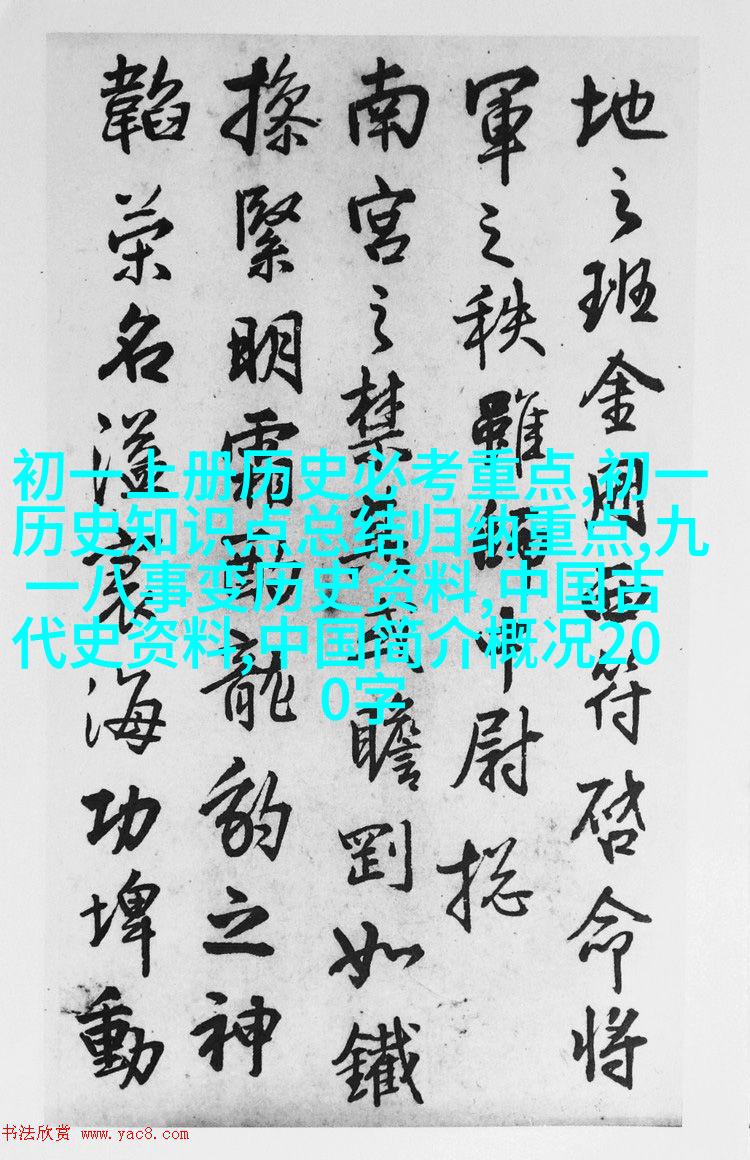 地之班金周臣符啓命将
軍之秩雖師中尉揔
南宫之禁瞻劉如鐵
操緊明霜勒龍豹之神
韜荣名溢寰海功埤動
初一上册历史必考重点,初一
历史知识点总结归纳重点,九
一八事变历史资料,中国古
代史资料,中国简介概况20
0字
书法欣赏 www.yac8.com